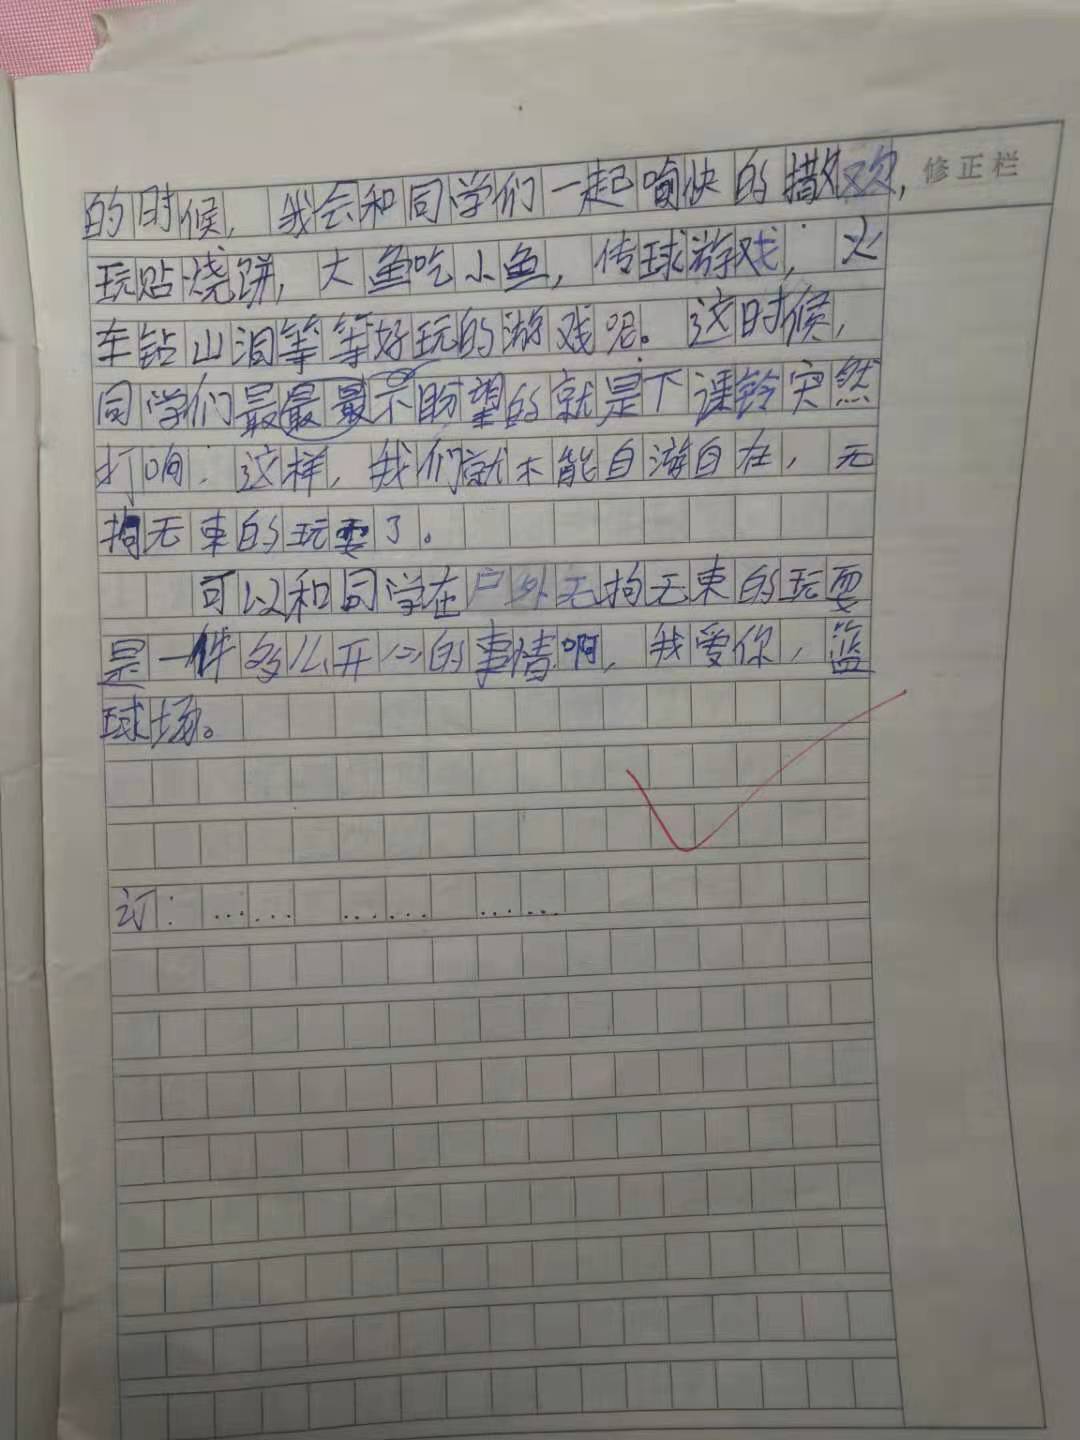 修正栏
的时候，我会和同学们一起愉快的撒欢，
玩贴烧饼，大鱼吃小鱼，传球游戏，火
车钻山洞等等好玩的游戏呢。这时候，
同学们最最最不盼望的就是下课铃突然
打响。这样，我们就不能自游自在，无
拘无束的玩耍了。
可以和同学在户外无拘无束的玩耍
是一件多么开心的事情啊，我爱你，篮
球场。
订：…… …… ……